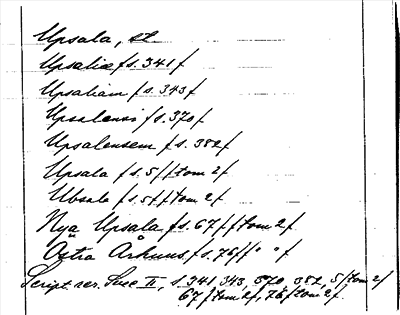 Upsala, st.
Upsalia /s. 341/
Upsaliam /s. 343/
Upsalensi /s. 370/
Upsalensem /s. 382/
Upsala /s. 5/ /tom 2/
Ubsala /s. 5/ /tom 2/
Nya Upsala /s. 67/ /tom 2/
Östra Århuus /s. 76/ /" "/
Script. rer. Suec II, s. 341, 343, 370, 382, 5/tom 2/
67/tom 2/, 76/tom 2/.